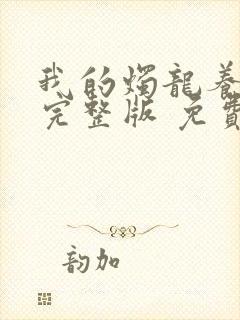 我的燭龍養
完整版 免費
韵加